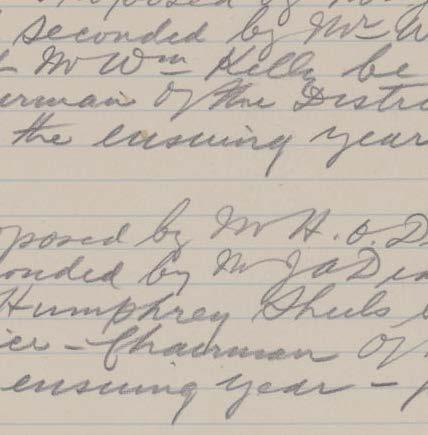 seconded by Mr W
Mr Wm Kelly be
erman of the Distri
the ensuing year
posed by Mr H. O. D
onded by Mr J A Dea
Humphrey Sheils b
ice - Chairman of
ensuing year -